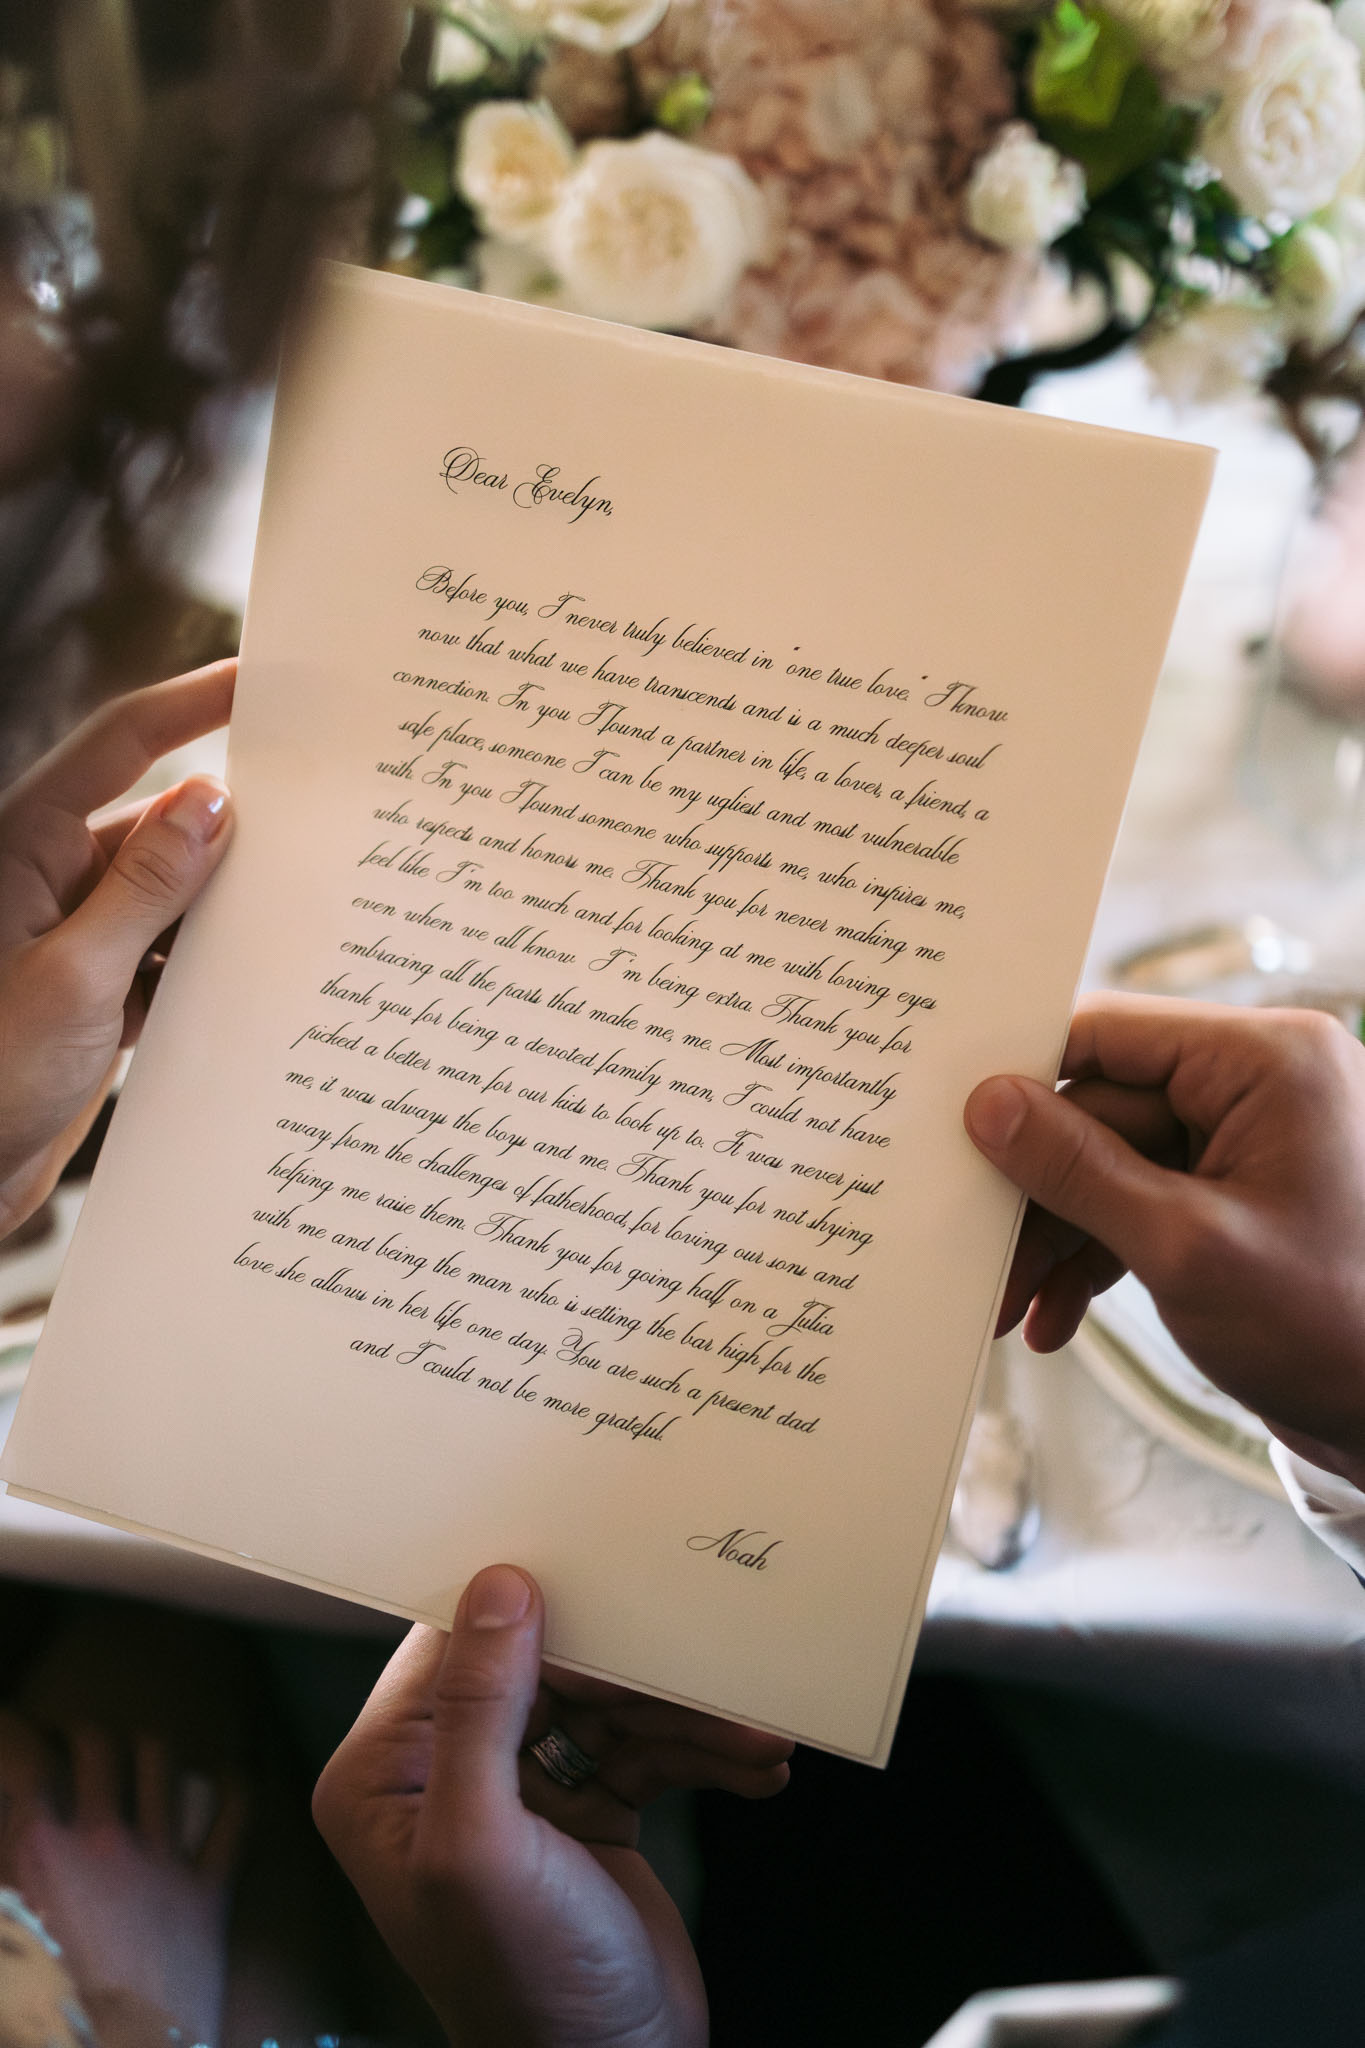 Dear Evelyn,
Before you, I never truly believed in "one true love." I know
now that what we have transcends and is a much deeper soul
connection. In you I found a partner in life, a lover, a friend, a
safe place, someone I can be my ugliest and most vulnerable
with. In you I found someone who supports me, who inspires me,
who respects and honors me. Thank you for never making me
feel like I'm too much and for looking at me with loving eyes
even when we all know I'm being extra. Thank you for
embracing all the parts that make me, me. Most importantly
thank you for being a devoted family man, I could not have
picked a better man for our kids to look up to. It was never just
me, it was always the boys and me. Thank you for not shying
away from the challenges of fatherhood, for loving our sons and
helping me raise them. Thank you for going half on a Julia
with me and being the man who is setting the bar high for the
love she allows in her life one day. You are such a present dad
and I could not be more grateful.
Noah